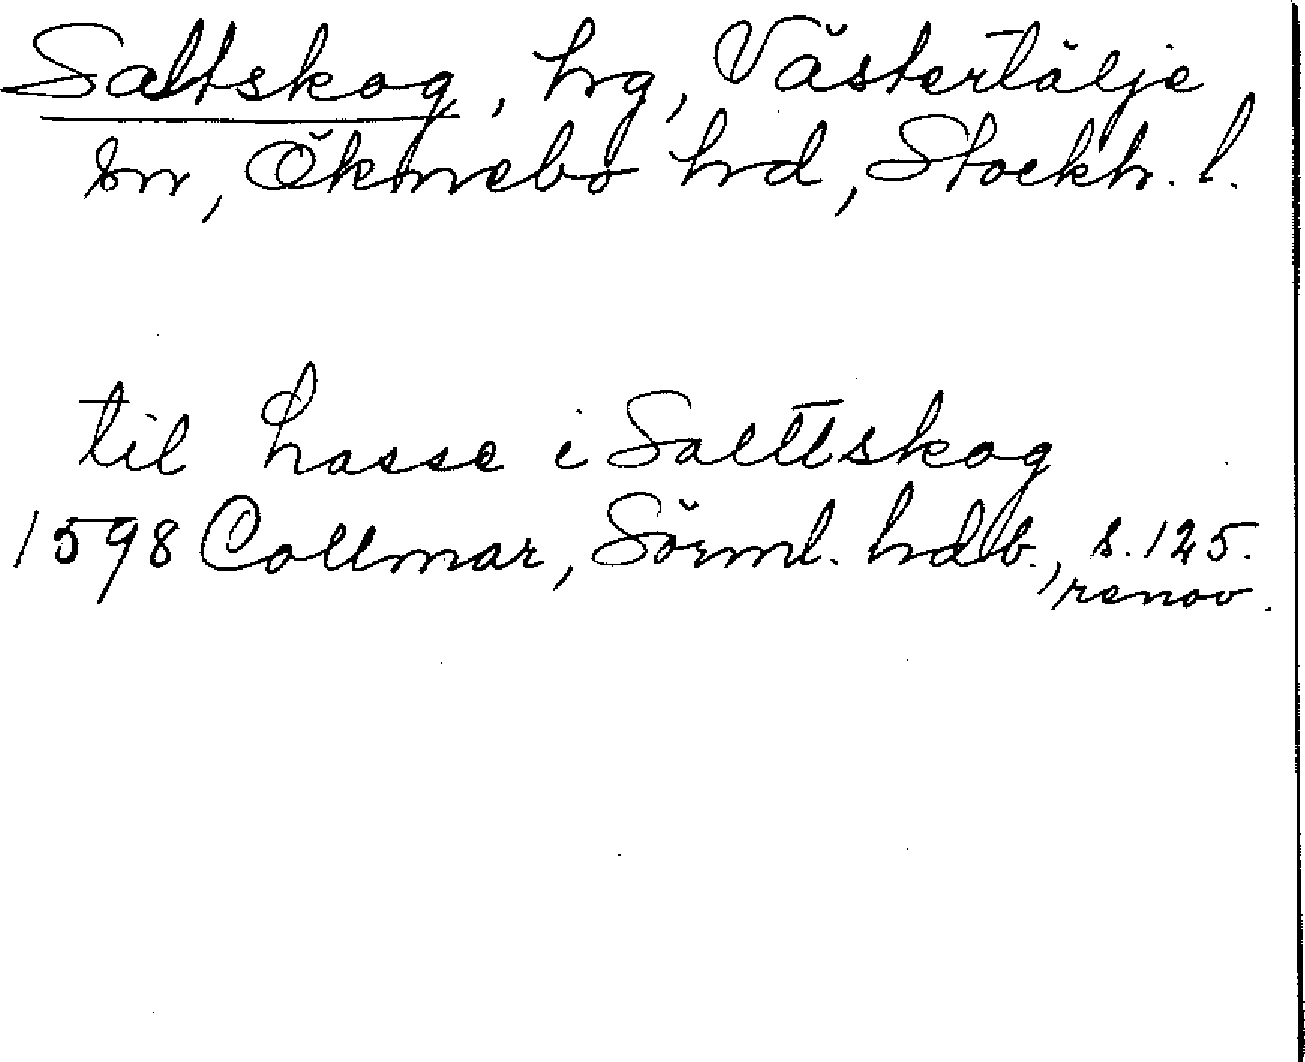 Saltskog, hg, Västertälje
sn, Öknebo hd, Stockh. l.
til hasse i Salttskog
1598 Collmar, Sörml. hdb., s. 125.
renov.